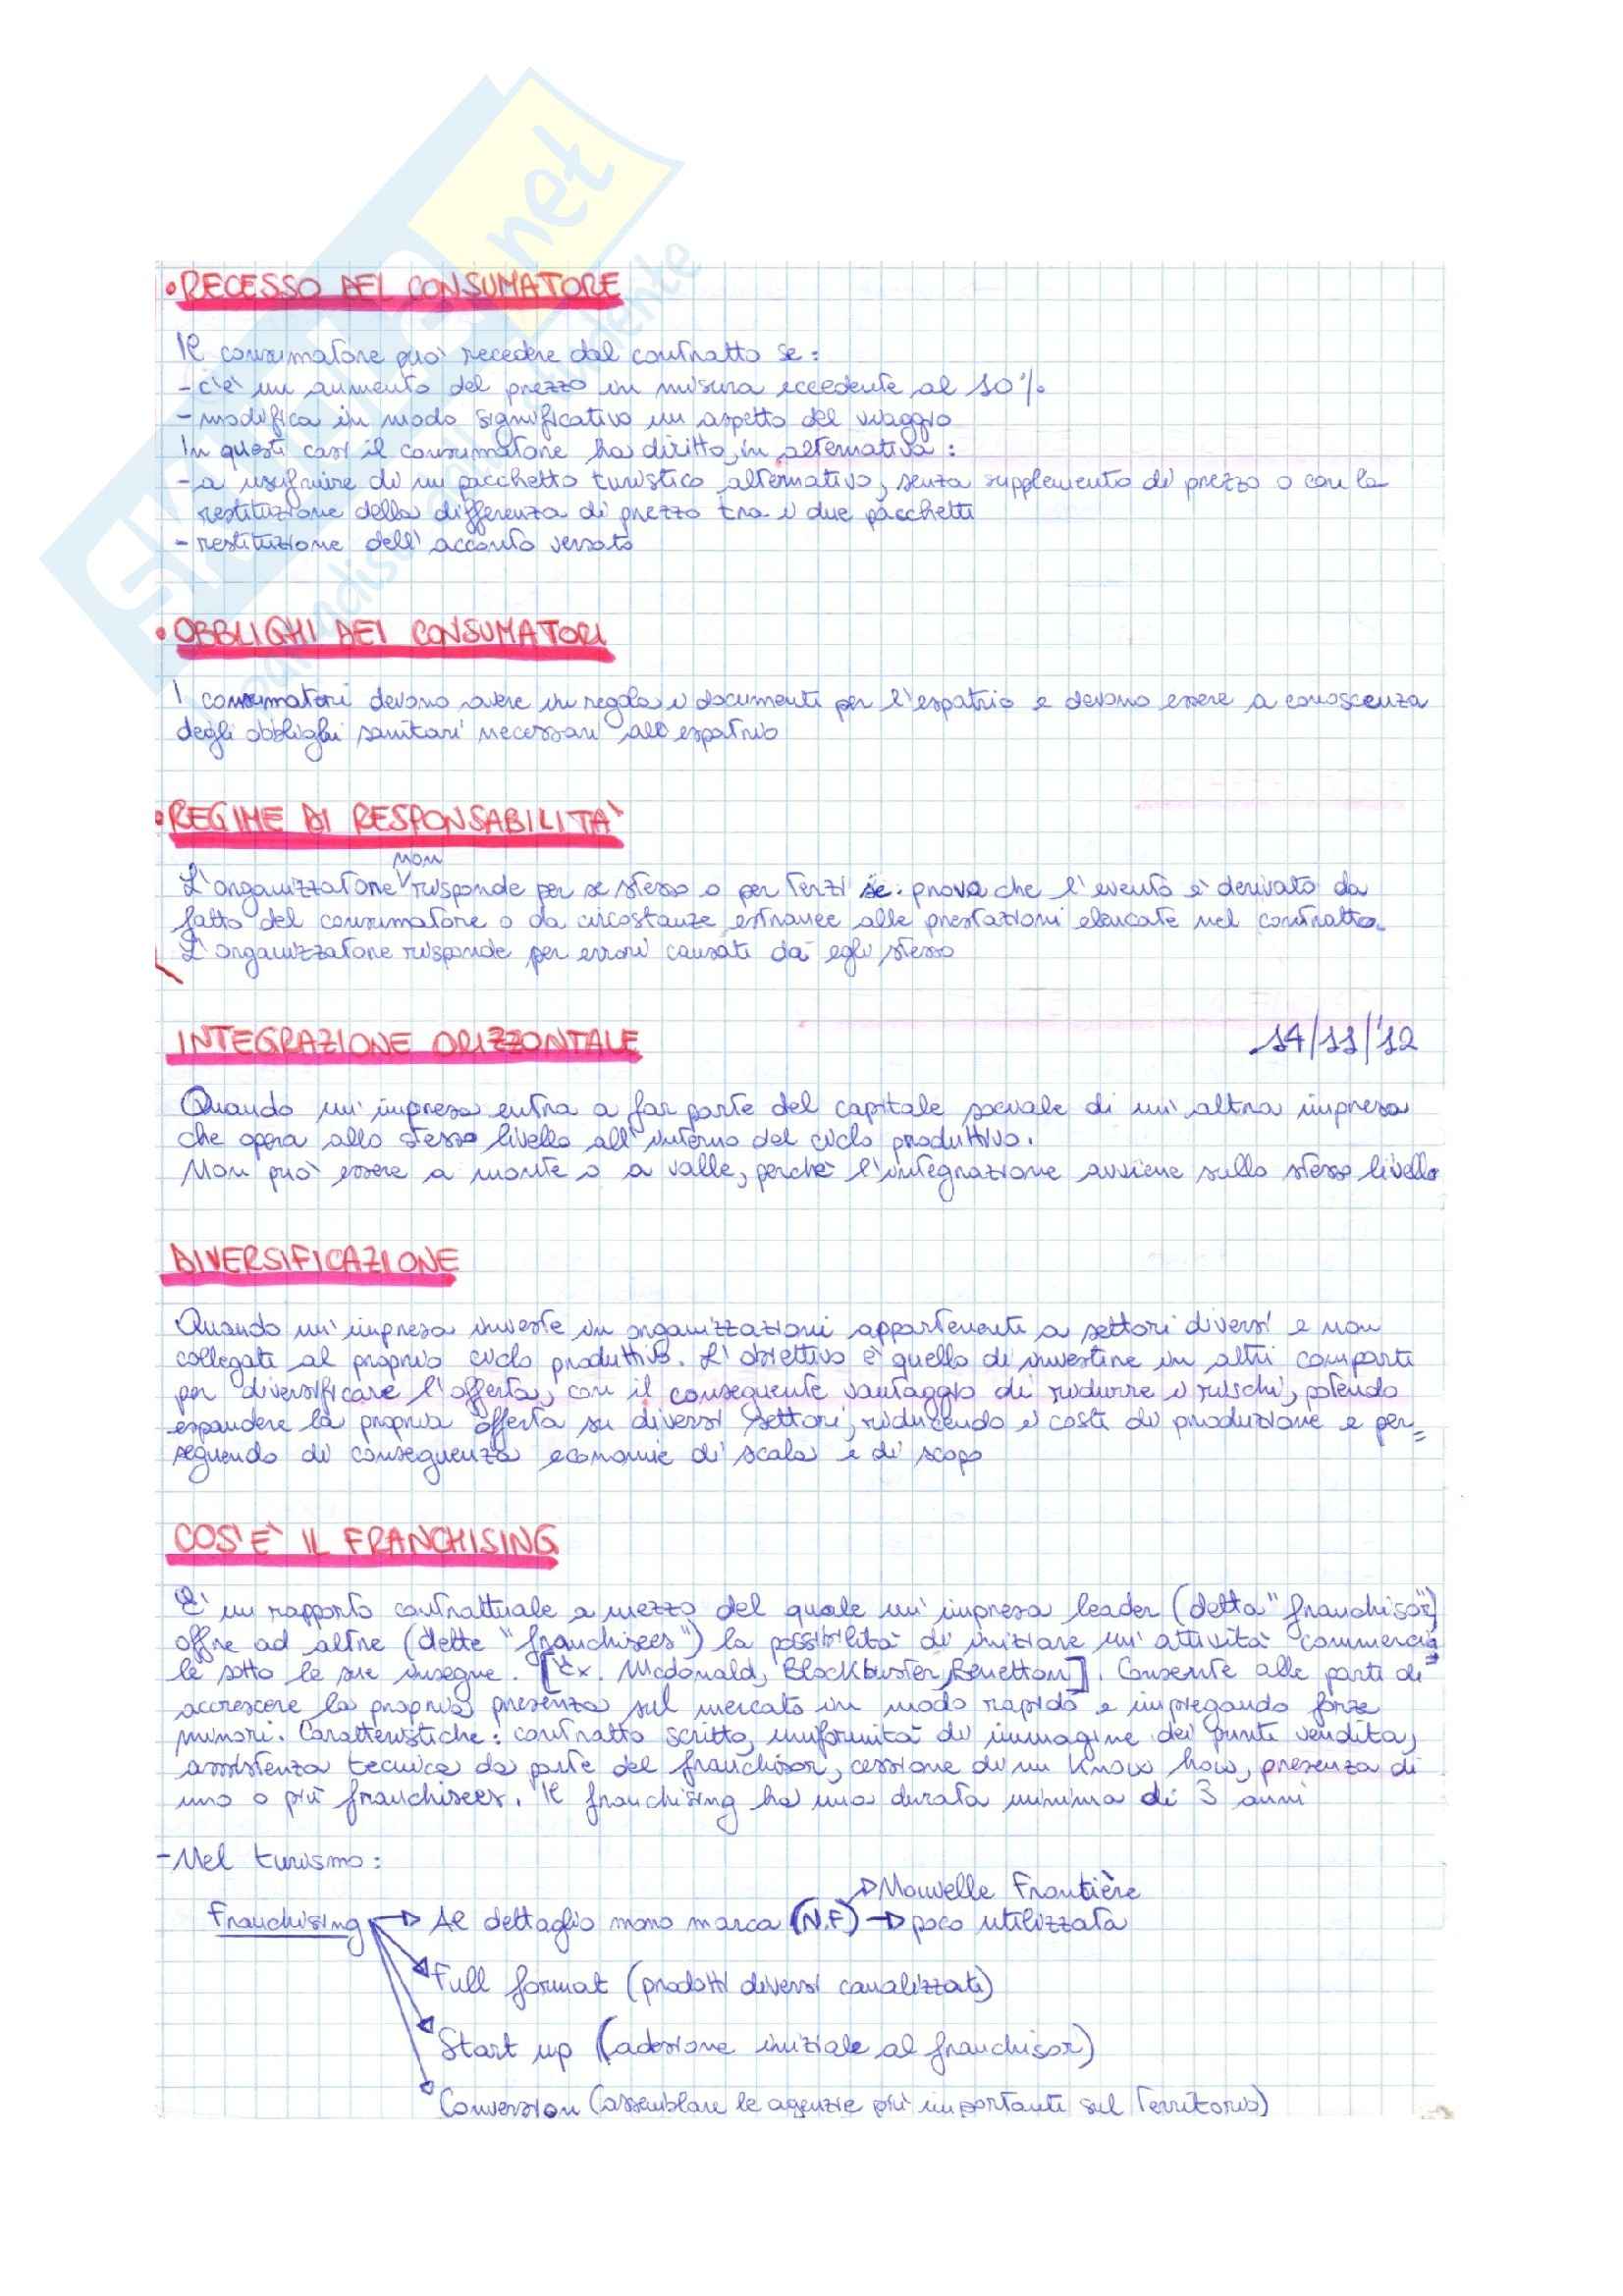 • RECESSO DEL CONSUMATORE
Il consumatore può recedere dal contratto se:
- c'è un aumento del prezzo in misura eccedente al 10%
- modifica in modo significativo un aspetto del viaggio
In questi casi il consumatore ha diritto, in alternativa:
- a usufruire di un pacchetto turistico alternativo, senza supplemento di prezzo o con la
restituzione della differenza di prezzo tra i due pacchetti
- restituzione dell'acconto versato
• OBBLIGHI DEI CONSUMATORI
I consumatori devono avere in regola i documenti per l'espatrio e devono essere a conoscenza
degli obblighi sanitari necessari all'espatrio
• REGIME DI RESPONSABILITA'
non
L'organizzatore risponde per se stesso o per terzi se prova che l'evento è derivato da
fatto del consumatore o da circostanze estranee alle prestazioni elencate nel contratto.
L'organizzatore risponde per errori causati da egli stesso
INTEGRAZIONE ORIZZONTALE 14/11/'12
Quando un'impresa entra a far parte del capitale sociale di un'altra impresa
che opera allo stesso livello all'interno del ciclo produttivo.
Non può essere a monte o a valle, perchè l'integrazione avviene sullo stesso livello
DIVERSIFICAZIONE
Quando un'impresa investe in organizzazioni appartenenti a settori diversi e non
collegati al proprio ciclo produttivo. L'obiettivo è quello di investire in altri comparti
per diversificare l'offerta, con il conseguente vantaggio di ridurre i rischi, potendo
espandere la propria offerta su diversi settori, riducendo i costi di produzione e per=
seguendo di conseguenza economie di scala e di scopo
COS'E' IL FRANCHISING
E' un rapporto contrattuale a mezzo del quale un'impresa leader (detta "franchisor")
offre ad altre (dette "franchisees") la possibilità di iniziare un'attività commercia=
le sotto le sue insegne. [Ex. Mcdonald, Blockbuster, Benetton]. Consente alle parti di
accrescere la propria presenza sul mercato in modo rapido e impiegando forze
minori. Caratteristiche: contratto scritto, uniformità di immagine dei punti vendita,
assistenza tecnica da parte del franchisor, cessione di un Know how, presenza di
uno o più franchisees. Il franchising ha una durata minima di 3 anni
- Nel turismo:
→ Nouvelle Frontière
Franchising → Al dettaglio mono marca (N.F) → poco utilizzata
Full format (prodotti diversi canalizzati)
Start up (adesione iniziale al franchisor)
Conversion (assemblare le agenzie più importanti sul territorio)